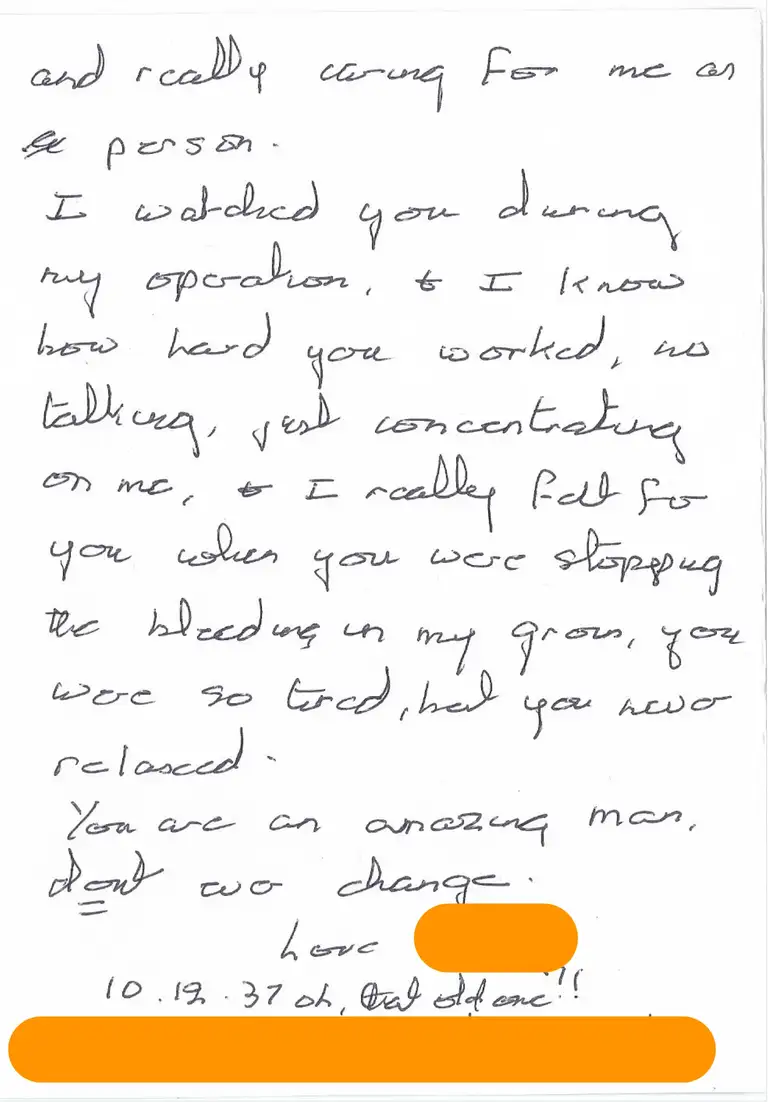 and really caring for me as
a person.
I watched you during
my operation, & I know
how hard you worked, no
talking, just concentrating
on me, & I really felt for
you when you were stopping
the bleeding in my groin, you
were so tired, but you never
relaxed.
You are an amazing man,
dont ever change.
Love
10.12.37 oh, that old one!!